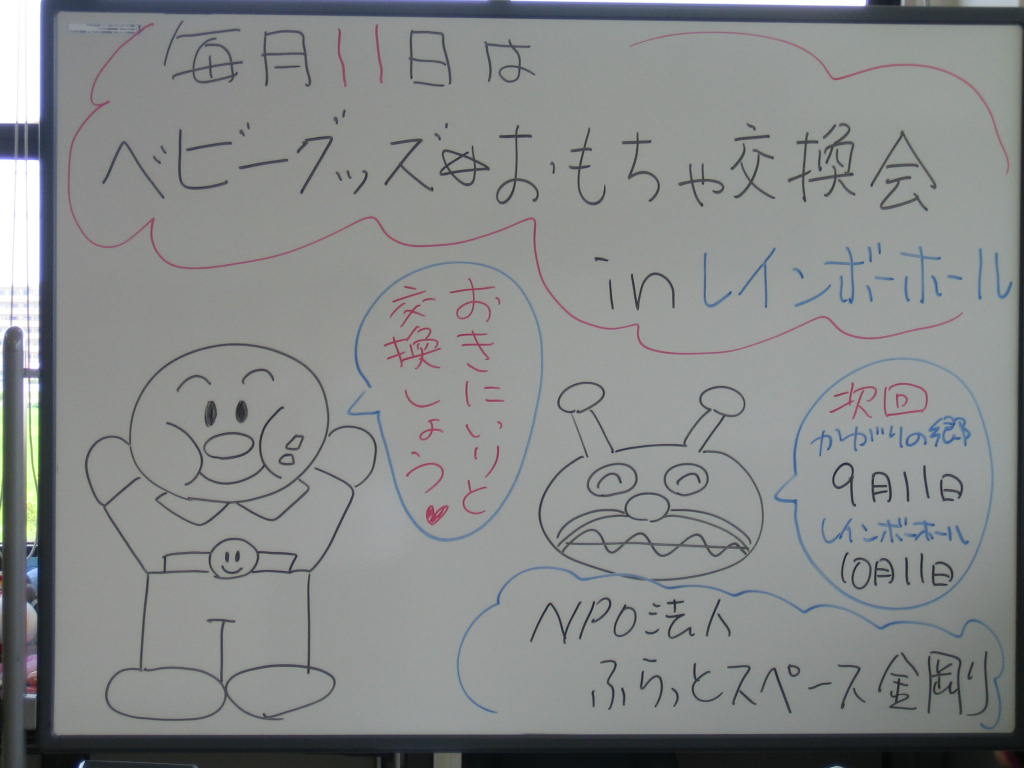 毎月11日は
ベビーグッズ☆おもちゃ交換会
in レインボーホール
おきにいりと
交換しょう♥
次回
かがりの郷
9月11日
レインボーホール
10月11日
NPO法人
ふらっとスペース金剛